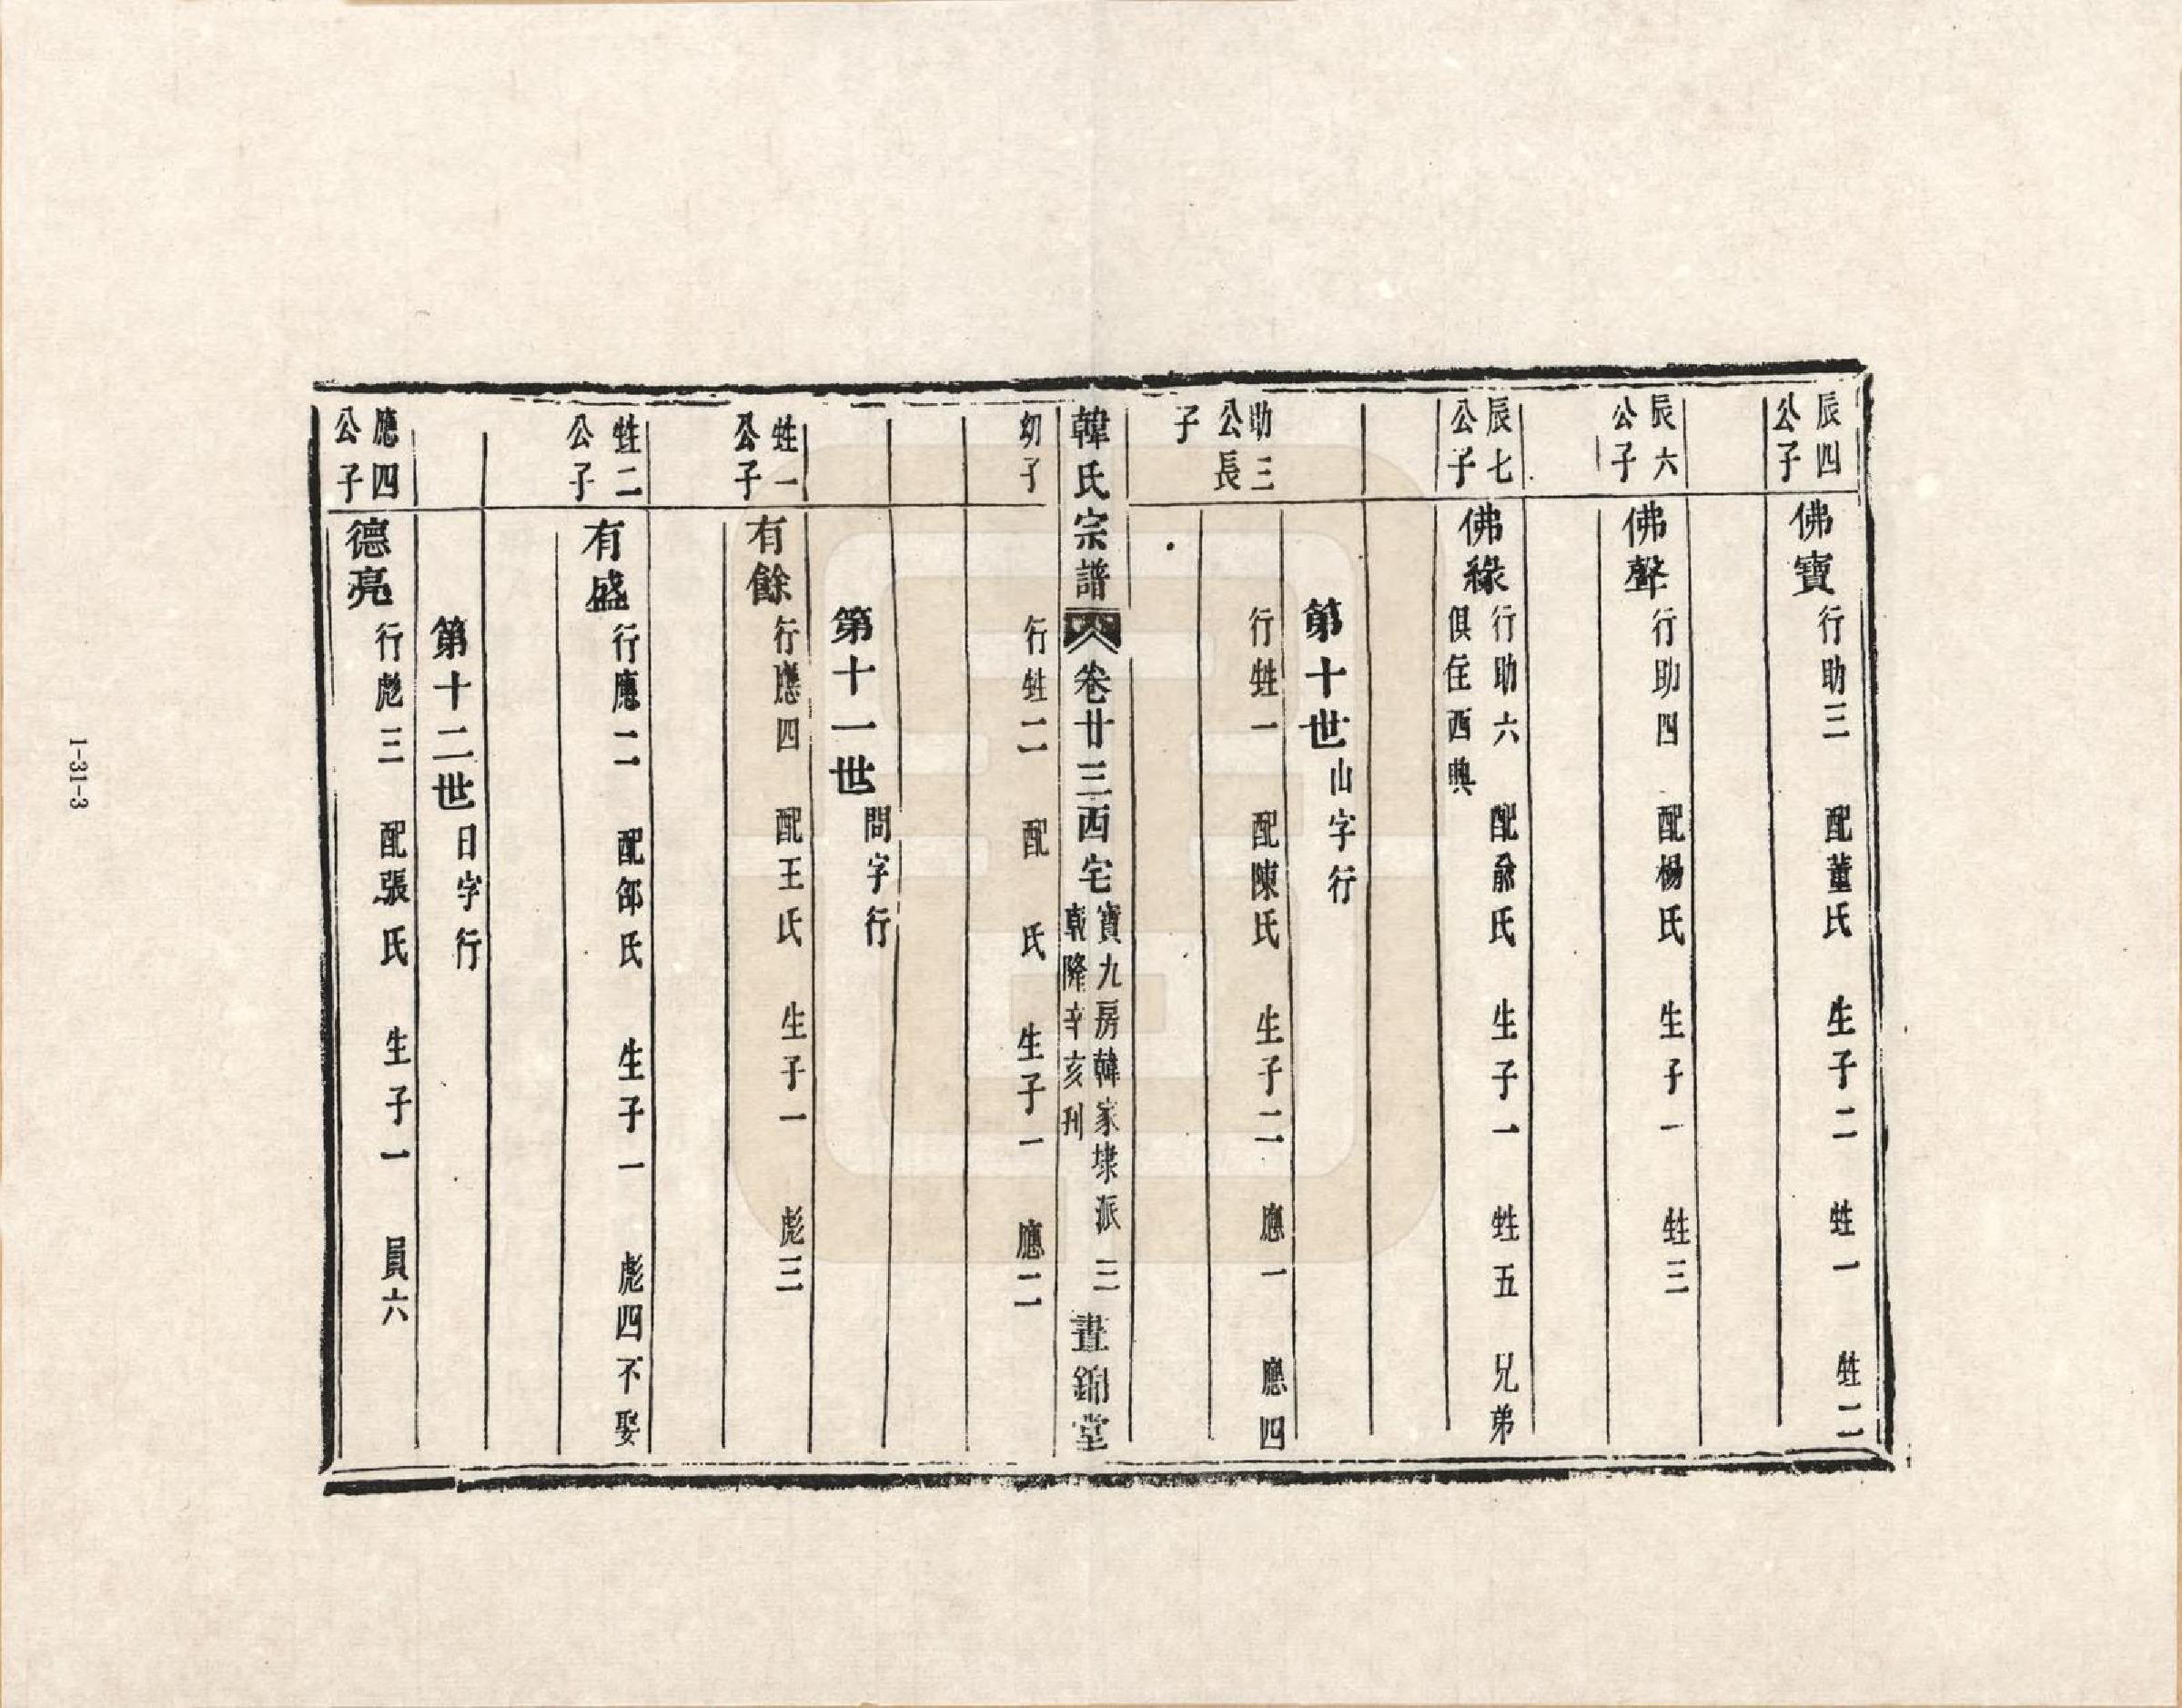 辰四
公子
佛寶
行助三 配董氏 生子二 甡一 甡二
辰六
公子
佛聲
行助四 配楊氏 生子一 甡三
辰七
公子
佛緣
行助六 配俞氏 生子一 甡五 兄弟
俱住西興
第十世
山字行
助三
公長
子
行甡一 配陳氏 生子二 應一 應四
韓氏宗譜 卷廿三西宅
寶九房韓家埭派 三
乾隆辛亥刊
晝錦堂
幼子
行甡二 配 氏 生子一 應二
第十一世
問字行
甡一
公子
有餘
行應四 配王氏 生子一 彪三
甡二
公子
有盛
行應二 配邵氏 生子一 彪四不娶
第十二世
日字行
應四
公子
德亮
行彪三 配張氏 生子一 員六
1-31-3